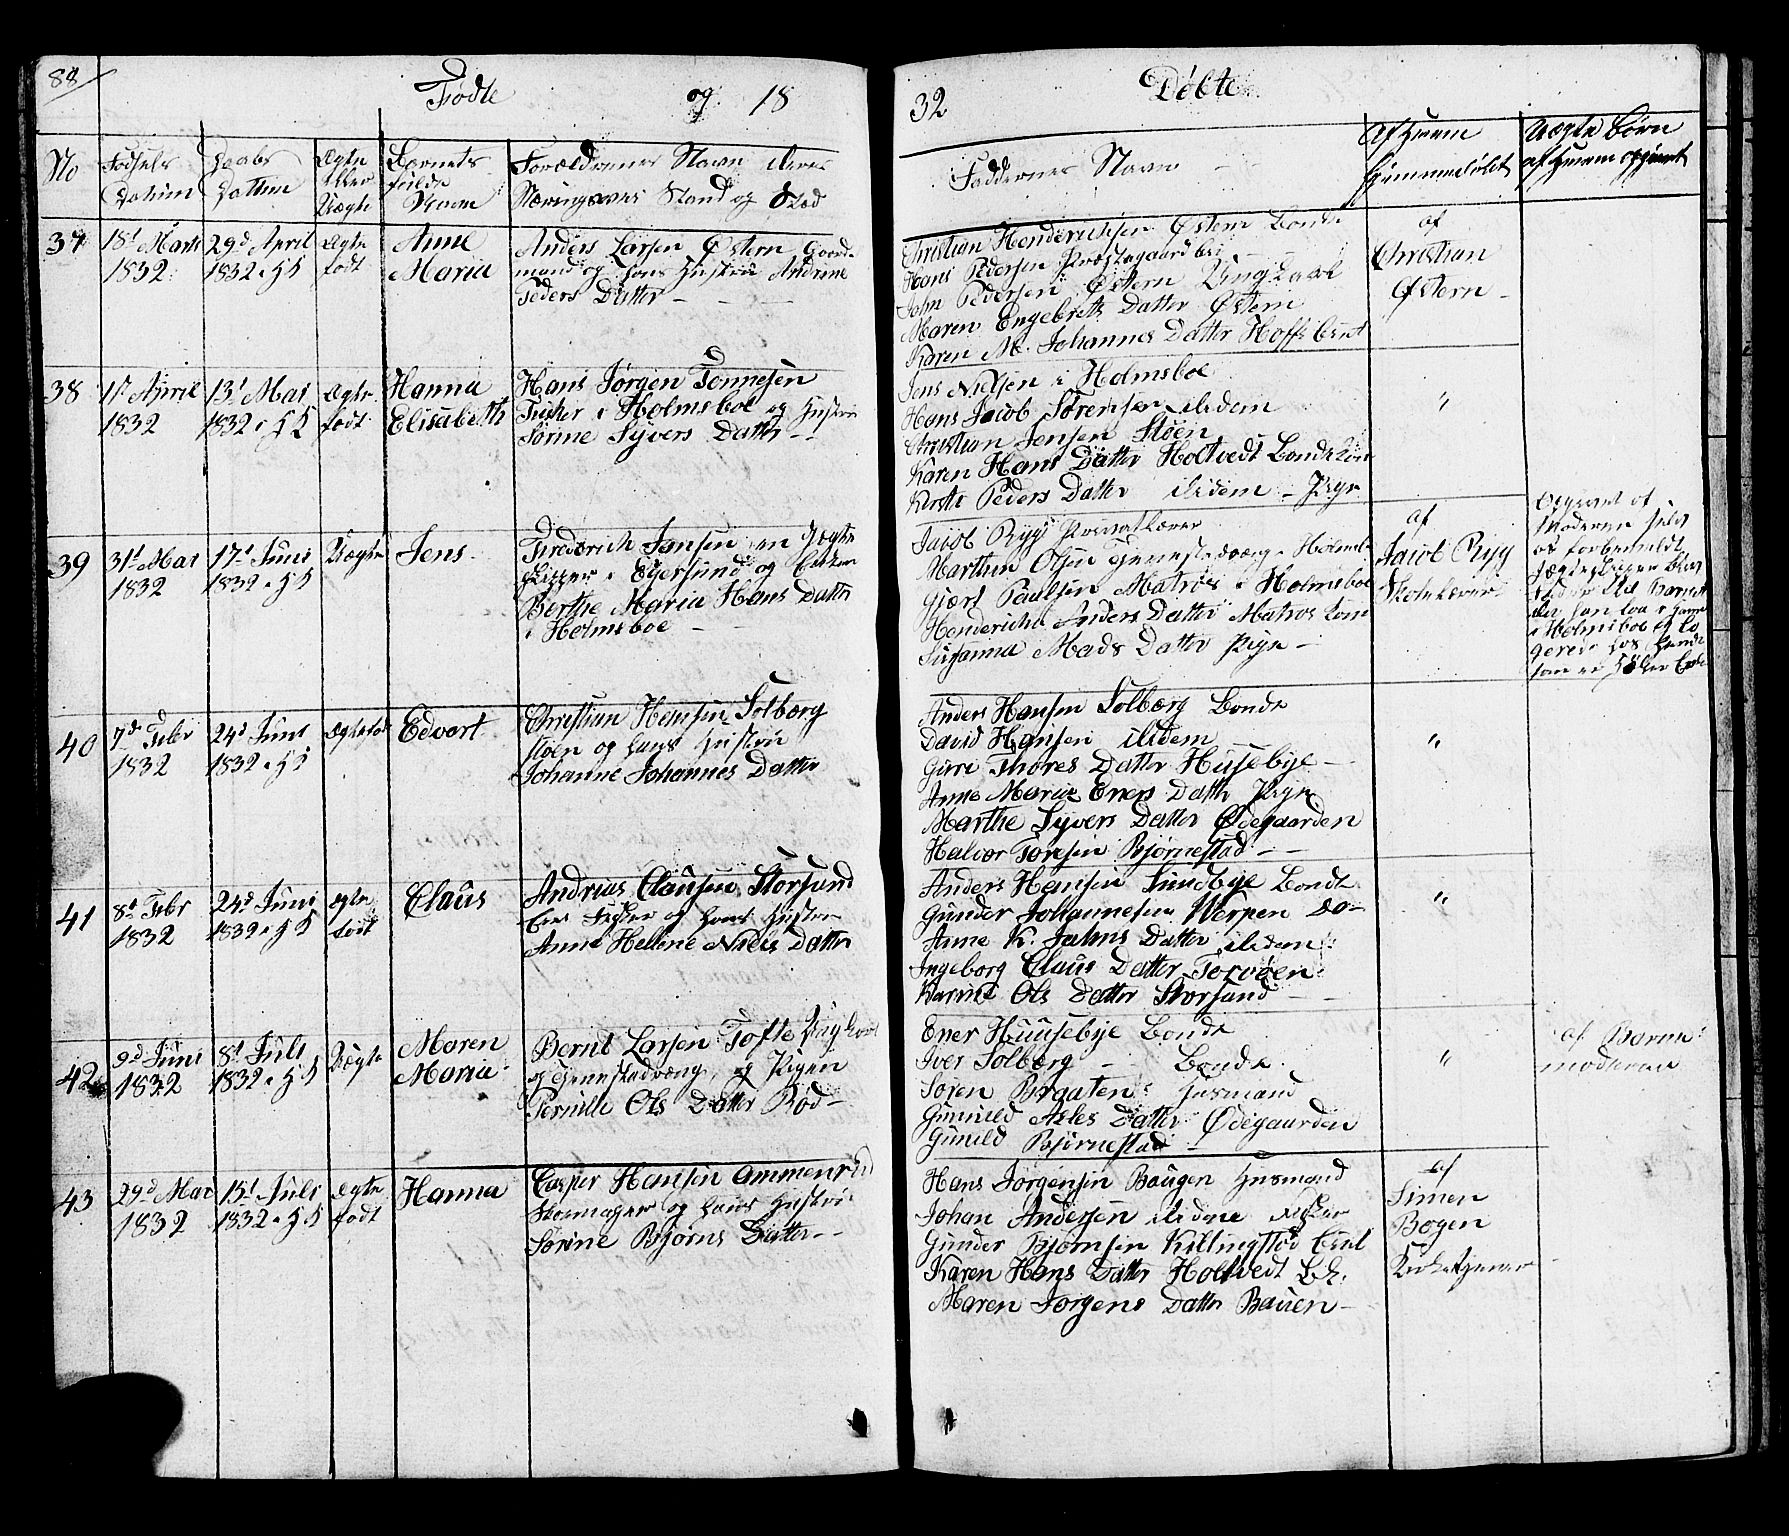 88/
Fødte og 18
32 Døbte
No
Fødsels Datum
Daabs Datum
Ægte Eller Uægte
Barnets fulde Navn
Forældrenes Navn deres
Nærings Stand og Sted
Faddernes Navn
Af hvem hjemmedøbt
Uægte børn
af hvem opgivet
37
18d Marts
1832
29d April
1832 i HK
Ægte
født
Anne
Maria
Anders Larsen Østern Gaard-
mand og hans Hustrue Andrine
Peders Datter
Christian Henderichsen Østern Bonde
Hans Pedersen Præstegaard
John Pedersen Østern Ungkarl
Maren Engebrets Datter Østern
Karen M. Johannes Datter Hoffs
af
Christian
Østern
38
11d April
1832
13d Mai
1832 i HK
Ægte
født
Hanna
Elisabeth
Hans Jørgen Tønnesen
Fisker i Holmsboe og Hustrue
Sørine Syvers Datter
Jens Nielsen i Holmsboe
Hans Jacob Sørensen ibidem
Christian Jensen Støen
Karen Hans Datter Holtvedt Bondekone
Kirsti Peders Datter ibidem Pige
"
39
31d Mai
1832
17d Juni
1832 i HK
Uægte
Jens
Frederich Jansen en Jægte
skipper i Egersund og
Berthe Maria Hans Datter
i Holmsboe
Jacob Rygg
Marthin Olsen Tjenestedreng i Holmsb
Gjært Paulsen Matros i Holmsboe
Henderiche Anders Datter Matros kone
Susanna Mads Datter Pige
af
Jacob Rygg
Skolelærer
Opgivet af
Moderen selv
at forbemeldt
fader til Barnet
der han laa i havn
i Holmsboe og lo
gerede hos hende
40
7d Febr
1832
24d Juni
1832 i HK
Ægtefød
Edvart
Christian Hansen Solberg
støen og hans Hustrue
Johanne Johannes Datter
Anders Hansen Solberg Bonde
David Hansen ibidem
Guri Thores Datter Husebye
Anne Maria Eners Datter Pige
Marthe Syvers Datter Ødegaarden
Halvor Toresen Bjørnestad
"
41
8d Febr
1832
24d Juni
1832 i HK
Ægte
født
Claus
Andreas Clausen Storsand
Eier Fisker og hans Hustrue
Anne Helene Niels Datter
Anders Hansen Sundbye Bonde
Gunder Johannesen Werpen do
Anne K. Jahns Datter ibidem
Ingeborg Claus Datter Torvøen
Karine Ols Datter Storsand
"
42
9d Juni
1832
8d Juli
1832 i HK
Uægte
Maren
Maria
Bernt Larsen Tofte Ungkarl
og Tjenestedreng, og Pigen
Pernille Ols Datter Rød
Ener Huusebye Bonde
Iver Solberg Bonde
Søren Braaten Husmand
Gunild Atles Datter Ødegaarden
Gunild Bjørnestad
"
af Barne-
moderen
43
29d Mai
1832
15d Juli
1832 i HK
Ægte
født
Hanna
Casper Hansen Ammenrud
Skomager og hans Hustrue
Sørine Bjørns Datter
Hans Jørgensen Baugen Husmand
Johan Andersen ibidem Fisker
Gunder Bjørnsen Killingstad
Karen Hans Datter Holtvedt
Maren Jørgens Datter Bauen
af
Simen
Bogen
Kirketjener